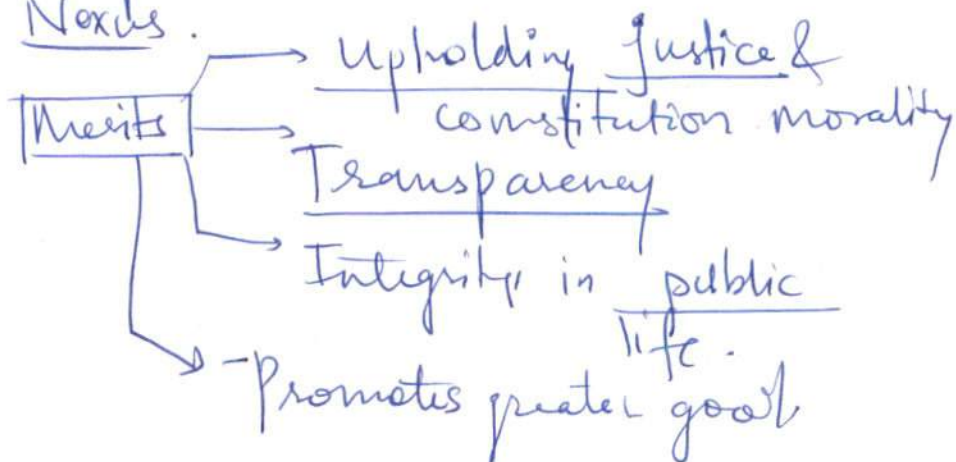 Nexus.
Upholding Justice &
Merits
constitution morality
Transparency
Integrity in public
life.
- Promotes greater good